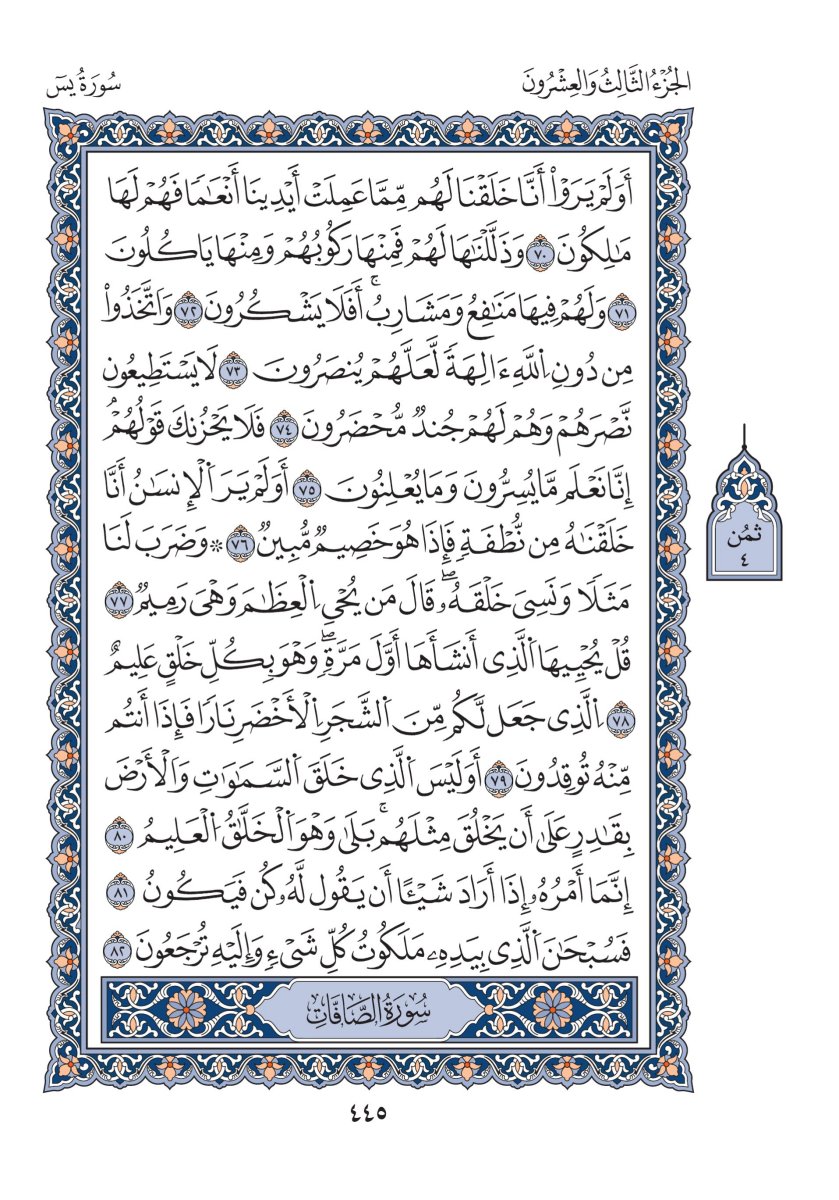 الجُزْءُ الثَّالِثُ وَالعِشْرُونَ
سُورَةُ يسٓ
أَوَلَمْ يَرَوْاْ أَنَّا خَلَقْنَا لَهُم مِّمَّا عَمِلَتْ أَيْدِينَا أَنْعَٰمٗا فَهُمْ لَهَا
مَٰلِكُونَ ٧٠ وَذَلَّلْنَٰهَا لَهُمْ فَمِنْهَا رَكُوبُهُمْ وَمِنْهَا يَاكُلُونَ
٧١ وَلَهُمْ فِيهَا مَنَٰفِعُ وَمَشَارِبُۚ أَفَلَا يَشْكُرُونَ ٧٢ وَاَتَّخَذُواْ
مِن دُونِ اِ۬للَّهِ ءَالِهَةٗ لَّعَلَّهُمْ يُنصَرُونَ ٧٣ لَا يَسْتَطِيعُون
نَّصْرَهُمْ وَهُمْ لَهُمْ جُندٞ مُّحْضَرُونَ ٧٤ فَلَا يَحْزُنكَ قَوْلُهُمْۘ
إِنَّا نَعْلَم مَّا يُسِرُّونَ وَمَا يُعْلِنُونَ ٧٥ أَوَلَمْ يَرَ اَ۬لْإِنسَٰنُ أَنَّا
خَلَقْنَٰهُ مِن نُّطْفَةٖ فَإِذَا هُوَ خَصِيمٞ مُّبِينٞ ٧٦ ۞ وَضَرَبَ لَنَا
مَثَلٗا وَنَسِيَ خَلْقَهُۥۖ قَالَ مَن يُحْيِ اِ۬لْعِظَٰمَ وَهْىَ رَمِيمٞ ٧٧
قُلْ يُحْيِيهَا اَ۬لَّذِي أَنشَأَهَا أَوَّلَ مَرَّةٖۖ وَهْوَ بِكُلِّ خَلْقٍ عَلِيمٌ
٧٨ اِ۬لَّذِي جَعَل لَّكُم مِّنَ اَ۬لشَّجَرِ اِ۬لْأَخْضَرِ نَارٗا فَإِذَا أَنتُم
مِّنْهُ تُوقِدُونَ ٧٩ أَوَلَيْسَ اَ۬لَّذِي خَلَقَ اَ۬لسَّمَٰوَٰتِ وَاَلْأَرْضَ
بِقَٰدِرٍ عَلَىٰ أَن يَخْلُقَ مِثْلَهُمۚ بَلَىٰ وَهْوَ اَ۬لْخَلَّٰقُ اُ۬لْعَلِيمُ ٨٠
إِنَّمَا أَمْرُهُۥ إِذَا أَرَادَ شَيْـًٔا أَن يَقُول لَّهُۥ كُن فَيَكُونُ ٨١
فَسُبْحَٰنَ اَ۬لَّذِي بِيَدِهِۦ مَلَكُوتُ كُلِّ شَىْءٖ وَإِلَيْهِ تُرْجَعُونَ ٨٢
سُورَةُ الصَّافَّاتِ
ثُمُن
٤
٤٤٥